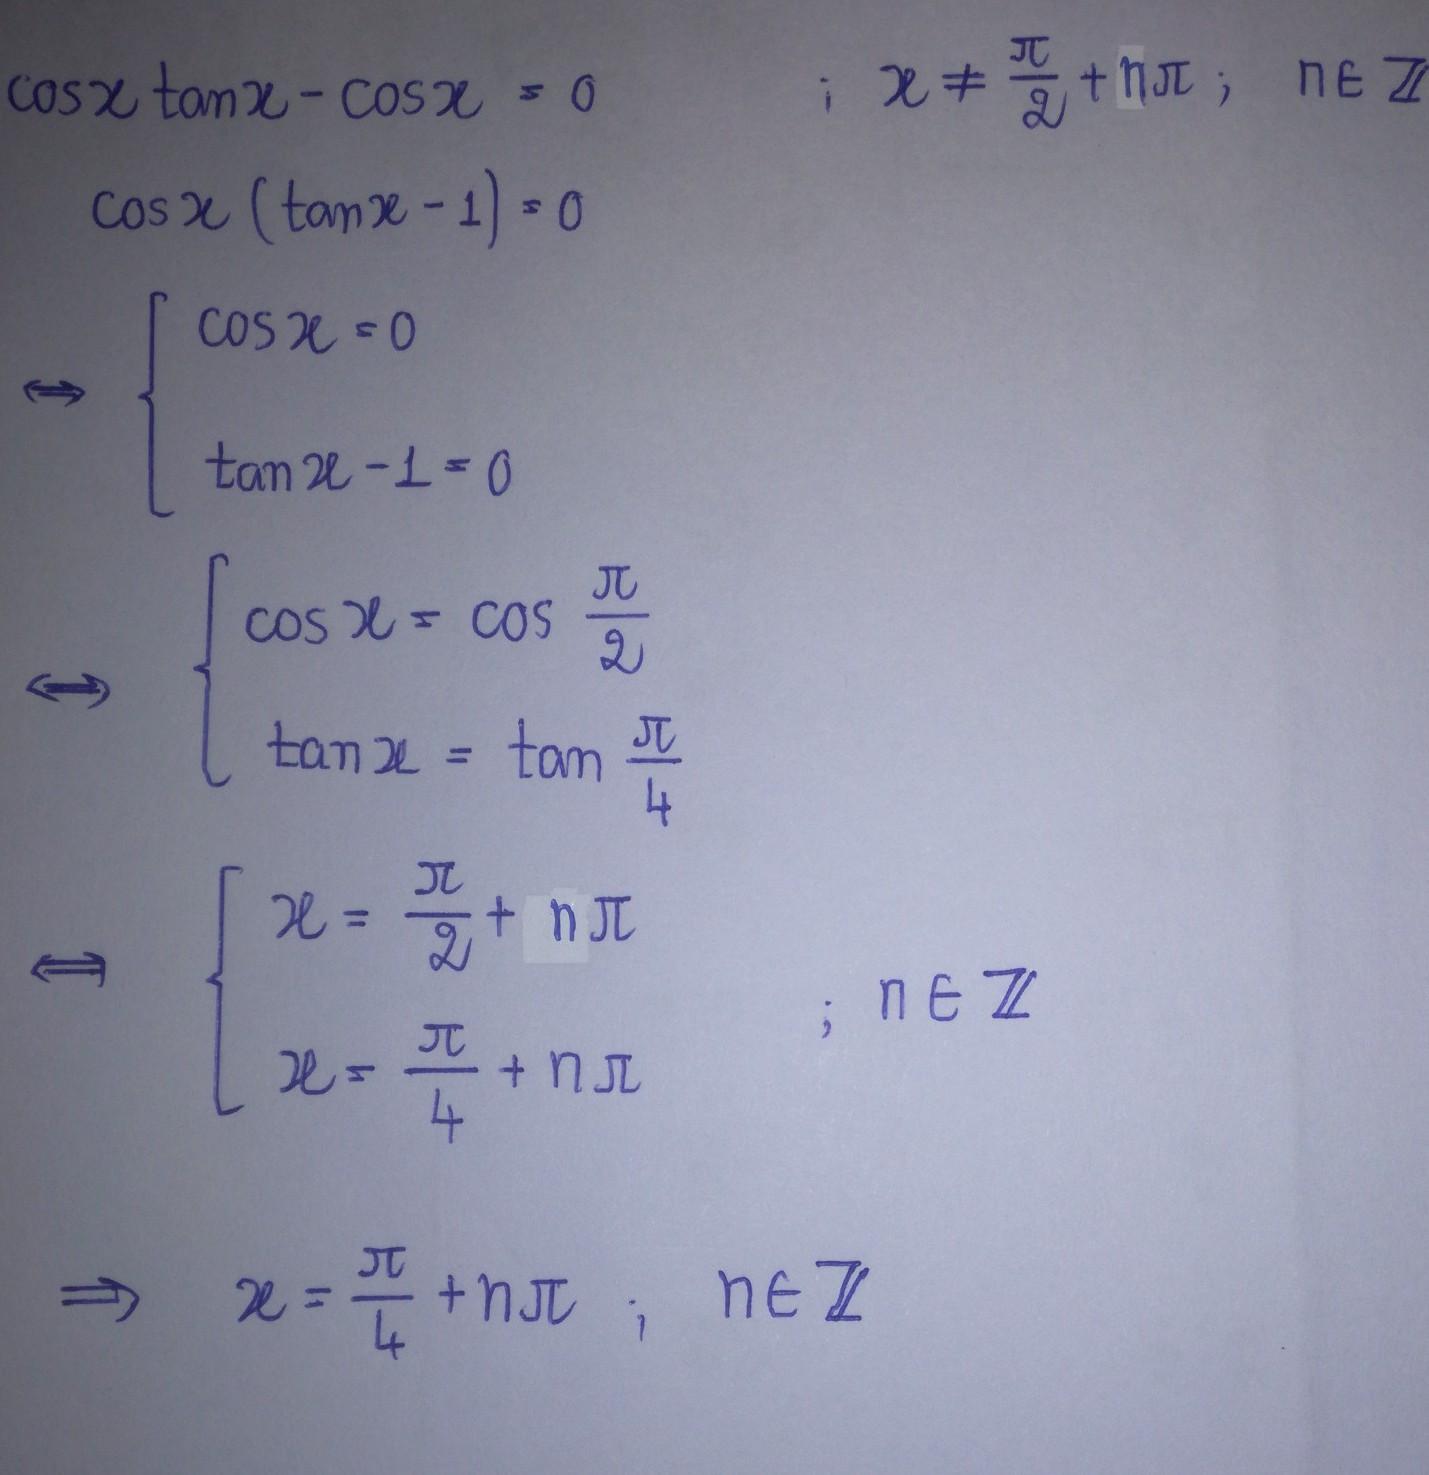 cosx tanx - cosx = 0 ; x ≠ π/2 + nπ ; n ∈ ℤ
cosx (tanx - 1) = 0
⇔ { cosx = 0
tanx - 1 = 0
⇔ { cosx = cos π/2
tanx = tan π/4
⇔ { x = π/2 + nπ
x = π/4 + nπ ; n ∈ ℤ
⇒ x = π/4 + nπ ; n ∈ ℤ